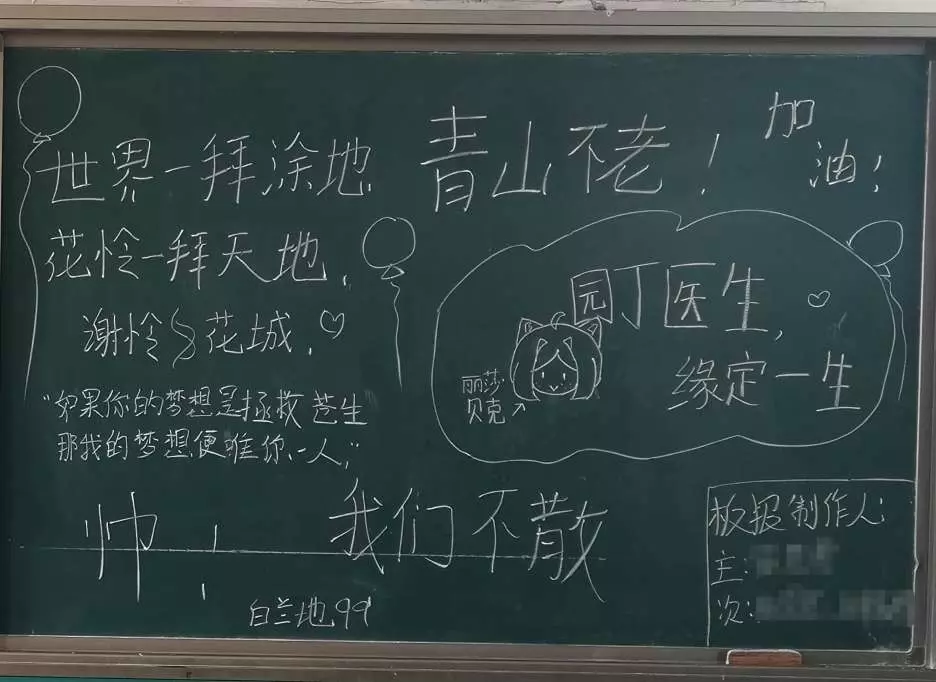 世界一拜涂地
花怜一拜天地,
谢怜 花城.
"如果你的梦想是拯救苍生
那我的梦想便唯你一人,"
青山不老!
加
油!
园丁医生,
缘定一生
丽莎
贝克
帅!
我们不散
白兰地99
板报制作人:
主:
次: